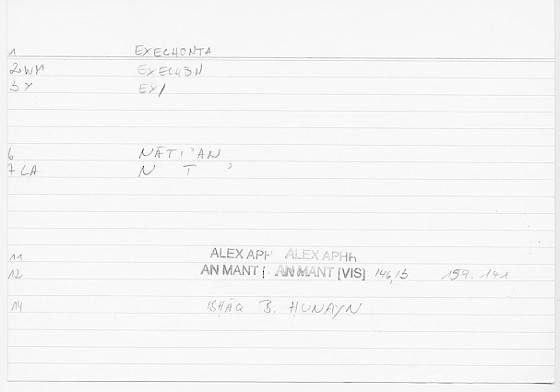 1 EXECHONTA
2 WM EXECH3N
3 Y EX/
6 NĀTI'AN
7 LA N T '
11 ALEX APH ALEX APHR
12 AN MANT AN MANT [VIS] 146,15 159.141
14 ISḤĀQ B. ḤUNAYN